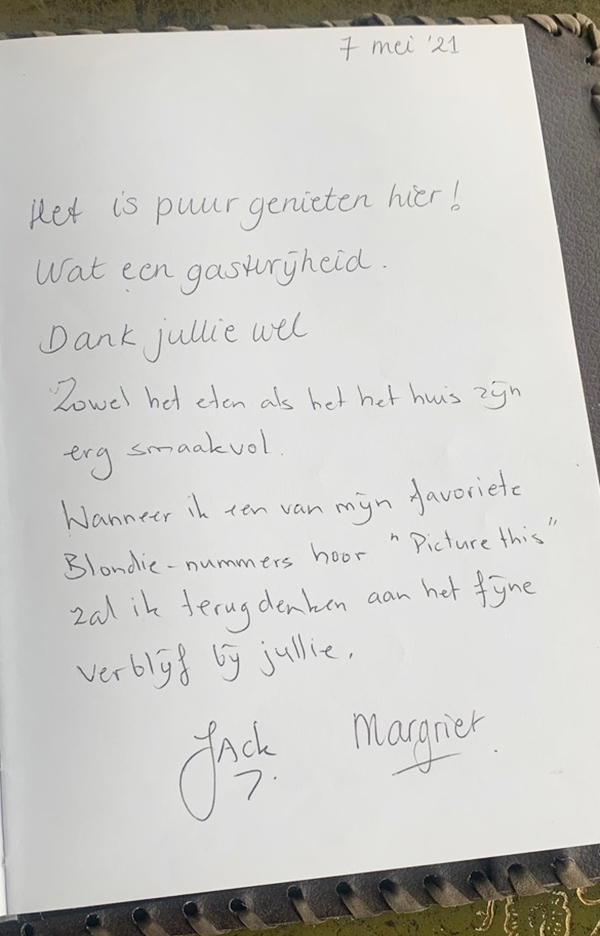 7 mei '21
Het is puur genieten hier!
Wat een gastvrijheid.
Dank jullie wel
Zowel het eten als het het huis zijn
erg smaakvol.
Wanneer ik een van mijn favoriete
Blondie-nummers hoor "Picture this"
zal ik terugdenken aan het fijne
verblijf bij jullie.
Jack Margriet.